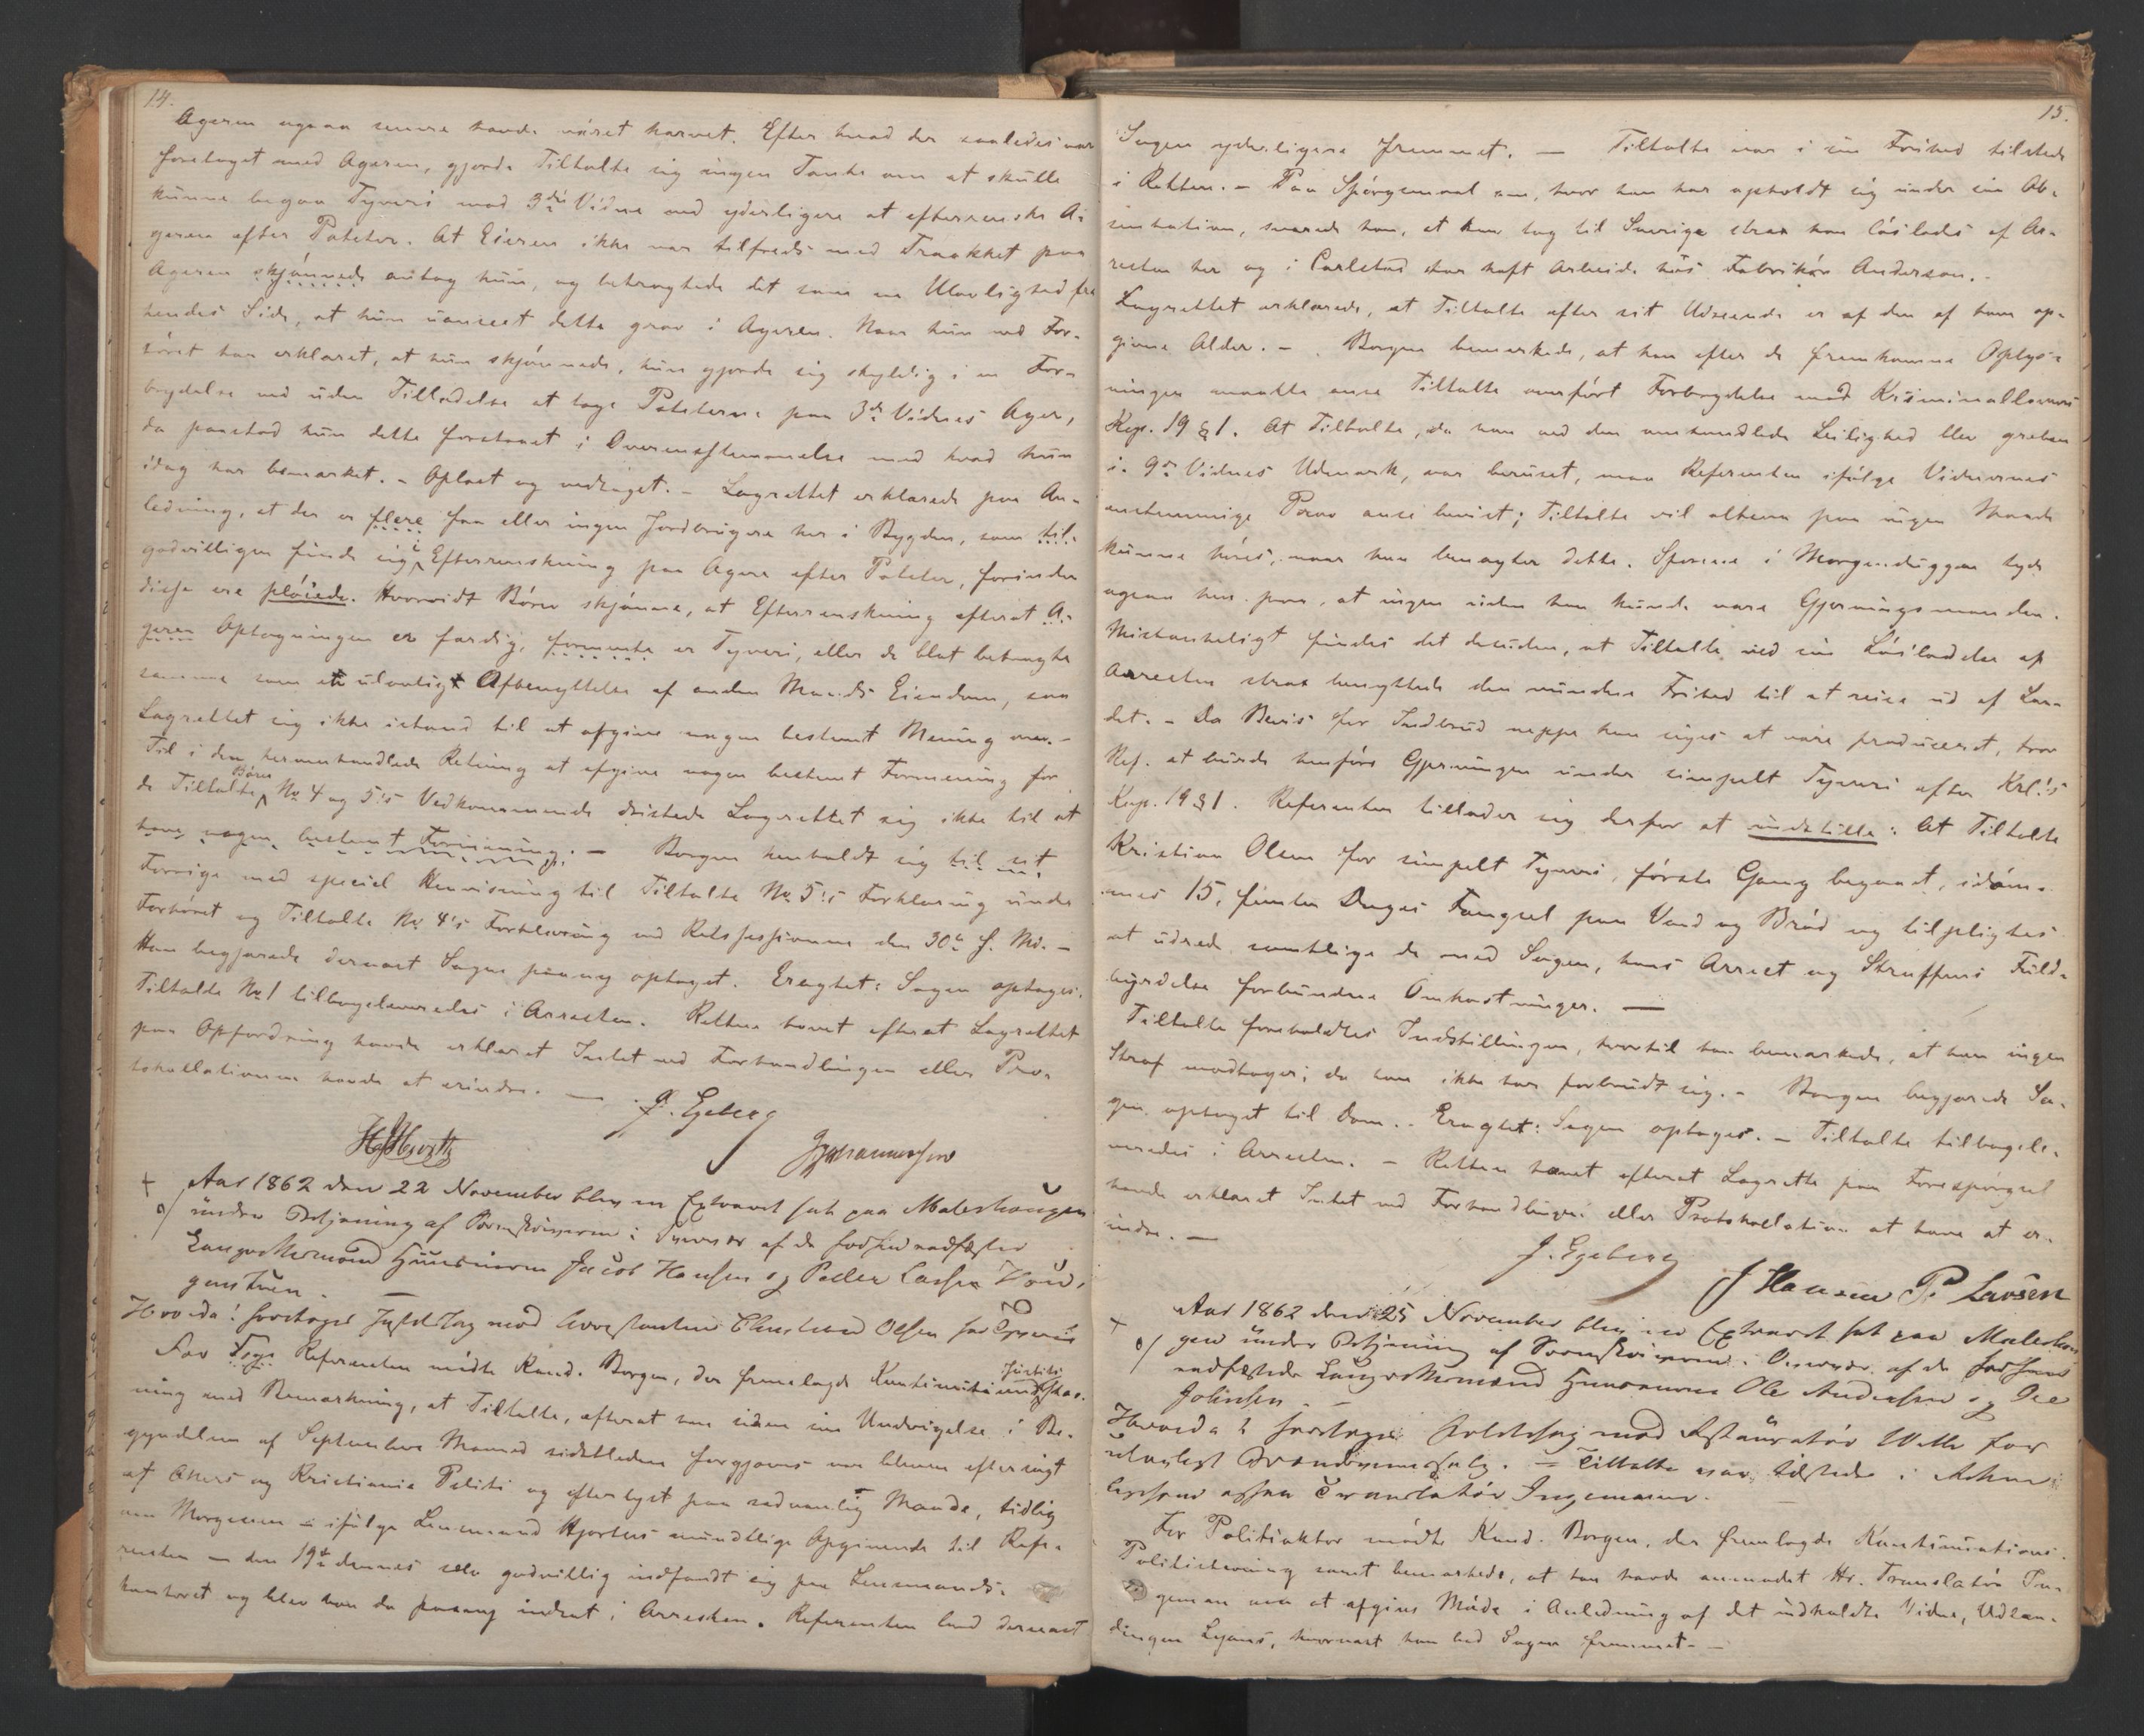 14.
Ageren ogsaa senere havde været harvet. Efter hvad der saaledes var
foretaget med Ageren, gjorde Tiltalte sig ingen Tanke om at skulle
kunne begaa Tyveri mod 3die Vidne ved yderligere at efterrenske A-
geren efter Poteter. At Eieren ikke var tilfreds med Traakket paa
Ageren skjønnede antog hun, og betragtede det som en Ulovlighed fra
hendes Side, at hun uanseet dette grov i Ageren. Naar hun ved For-
høret har erklæret, at hun skjønnede, hun gjorde sig skyldig i en For-
brydelse ved uden Tilladelse at tage Poteterne paa 3die Vidnes Ager,
da paastod hun dette forstaaet i Overensstemmelse med hvad hun
idag har bemærket. - Oplæst og vedtaget. - Lagrettet erklærede paa An-
ledning, at der er flere faa eller ingen Jordbrugere her i Bygden, som til
godvilligen finde sig i Efterrenskning paa Agere efter Poteter, forinden
disse ere pløiede. Hvorvidt Børn skjønne, at Efterrenskning efterat A-
geren Optagningen er færdig, formente er Tyveri, eller de blot betragte
samme som et ulovligt Afbenyttelse af anden Mands Eiendom, saa
Lagrettet sig ikke istand til at afgive nogen bestemt Mening om. -
Til i den heromhandlede Retning at afgive nogen bestemt Formening for
de Tiltalte Børn No 4 og 5's Vedkommende dristede Lagrettet sig ikke til at
have nogen bestemt Formening. - Borgen henholdt sig til sit
Forrige med speciel Henvisning til Tiltalte No 5's Forklaring under
Forhøret og Tiltalte No 4's Forklaring ved Retssessionen den 30te f. Md. -
Han begjærede dernæst Sagen paany optaget. Eragtet: Sagen optages.
Tiltalte No 1 tilbageleveredes i Arresten. Retten hævet efterat Lagrettet
paa Opfordring havde erklæret Intet ved Forhandlingen eller Pro-
tokollationen havde at erindre. -
J. Egeberg
Aar 1862 den 22 November blev en Extraret sat paa Maleshaugen
under Betjening af Sorenskriveren i Overvær af de forhen edfæstede
Laugrettesmænd Huusmæn Jacob Hansen og Peder Larsen Hou-
genstuen. -
Hvorda: foretoges Justitssag mod Arrestanten Christian Olsen for Tyverie
For Sags Referenten mødte Kand. Borgen, der fremlagde Kontinuations Justitsstæv-
ning med Bemærkning, at Tiltalte, efterat han siden sin Undvigelse i Be-
gyndelsen af September Maaned sidstleden forgjæves var bleven eftersøgt
af Akers og Kristiania Politi og efterlyst paa sædvanlig Maade, tidlig
om Morgenen - ifølge Lensmand Hjorths mundtlige Opgivende til Refe-
renten - den 19de dennes selv godvillig indfandt sig paa Lensmands-
kontoret og blev han da paany indsat i Arresten. Referenten lod dernæst
15.
Sagen yderligere fremmet. - Tiltalte var i sin Frihed tilstede
i Retten. - Paa Spørgsmaal om, hvor han har opholdt sig under sin Ab-
sentation, svarede han, at han tog til Sverige strax han løslodes af Ar-
resten her og i Carlstad har haft Arbeide hos Fabrikør Anderson. -
Lagrettet erklærede, at Tiltalte efter sit Udseende er af den af ham op-
givne Alder. - Borgen bemærkede, at han efter de fremkomne Oplys-
ninger maatte anse Tiltalte overført Forbrydelse mod Kriminallovens
Kap. 19 § 1. At Tiltalte, da han ved den omhandlede Leilighed blev greben
i 9de Vidnes Udmark, var beruset, maa Referenten ifølge Vidnernes
enstemmige Prov anse bevist; Tiltalte vil altsaa paa ingen Maade
kunne høres, naar han benægter dette. Sporene i Morgenduggen tyde
ogsaa hen paa, at ingen uden han kunde være Gjerningsmanden.
Mistænkeligt findes det desuden, at Tiltalte ved sin Løsladelse af
Arresten strax benyttede den vundne Frihed til at reise ud af Lan-
det. - Da Bevis for Indbrud neppe kan siges at være produceret, tror
Ref. at burde henføre Gjerningen under simpelt Tyveri efter Krl.'s
Kap. 19 § 1. Referenten tillader sig derfor at indstille: At Tiltalte
Kristian Olsen for simpelt Tyveri, første Gang begaaet, idøm-
mes 15, femten Dages Fængsel paa Vand og Brød og tilpligtes
at udrede samtlige de med Sagen, hans Arrest og Straffens Fuld-
byrdelse forbundne Omkostninger. -
Tiltalte foreholdtes Indstillingen, hvortil han bemærkede, at han ingen
Straf modtager, da han ikke har forbrudt sig. - Borgen begjærede Sa-
gen optaget til Dom. - Eragtet: Sagen optages. - Tiltalte tilbagele-
veredes i Arresten. - Retten hævet efterat Lagrette paa Forespørgsel
havde erklæret Intet ved Forhandlingen eller Protokollationen at have at er-
indre. -
J. Egeberg
J Hansen P. Larsen
Aar 1862 den 25 November blev en Extraret sat paa Maleshau-
gen under Betjening af Sorenskriveren i Overvær af de forhen
edfæstede Laugrettesmænd Huusmæn Ole Andersen og Ole
Johnsen. -
Hvorda: foretoges Politisag mod Restauratør Witte for
ulovligt Brændevinssalg. - Tiltalte var tilstede i Retten
ligesom ogsaa Translatør Ingemann.
For Politiaktor mødte Kand. Borgen, der fremlagde Kontinuations-
Politistevning samt bemærkede, at han havde anmodet Hr. Translatør In-
geman om at afgive Møde i Anledning af det indkaldte Vidne, Udlæn-
dingen Lyons, hvornæst han lod Sagen fremmet. -